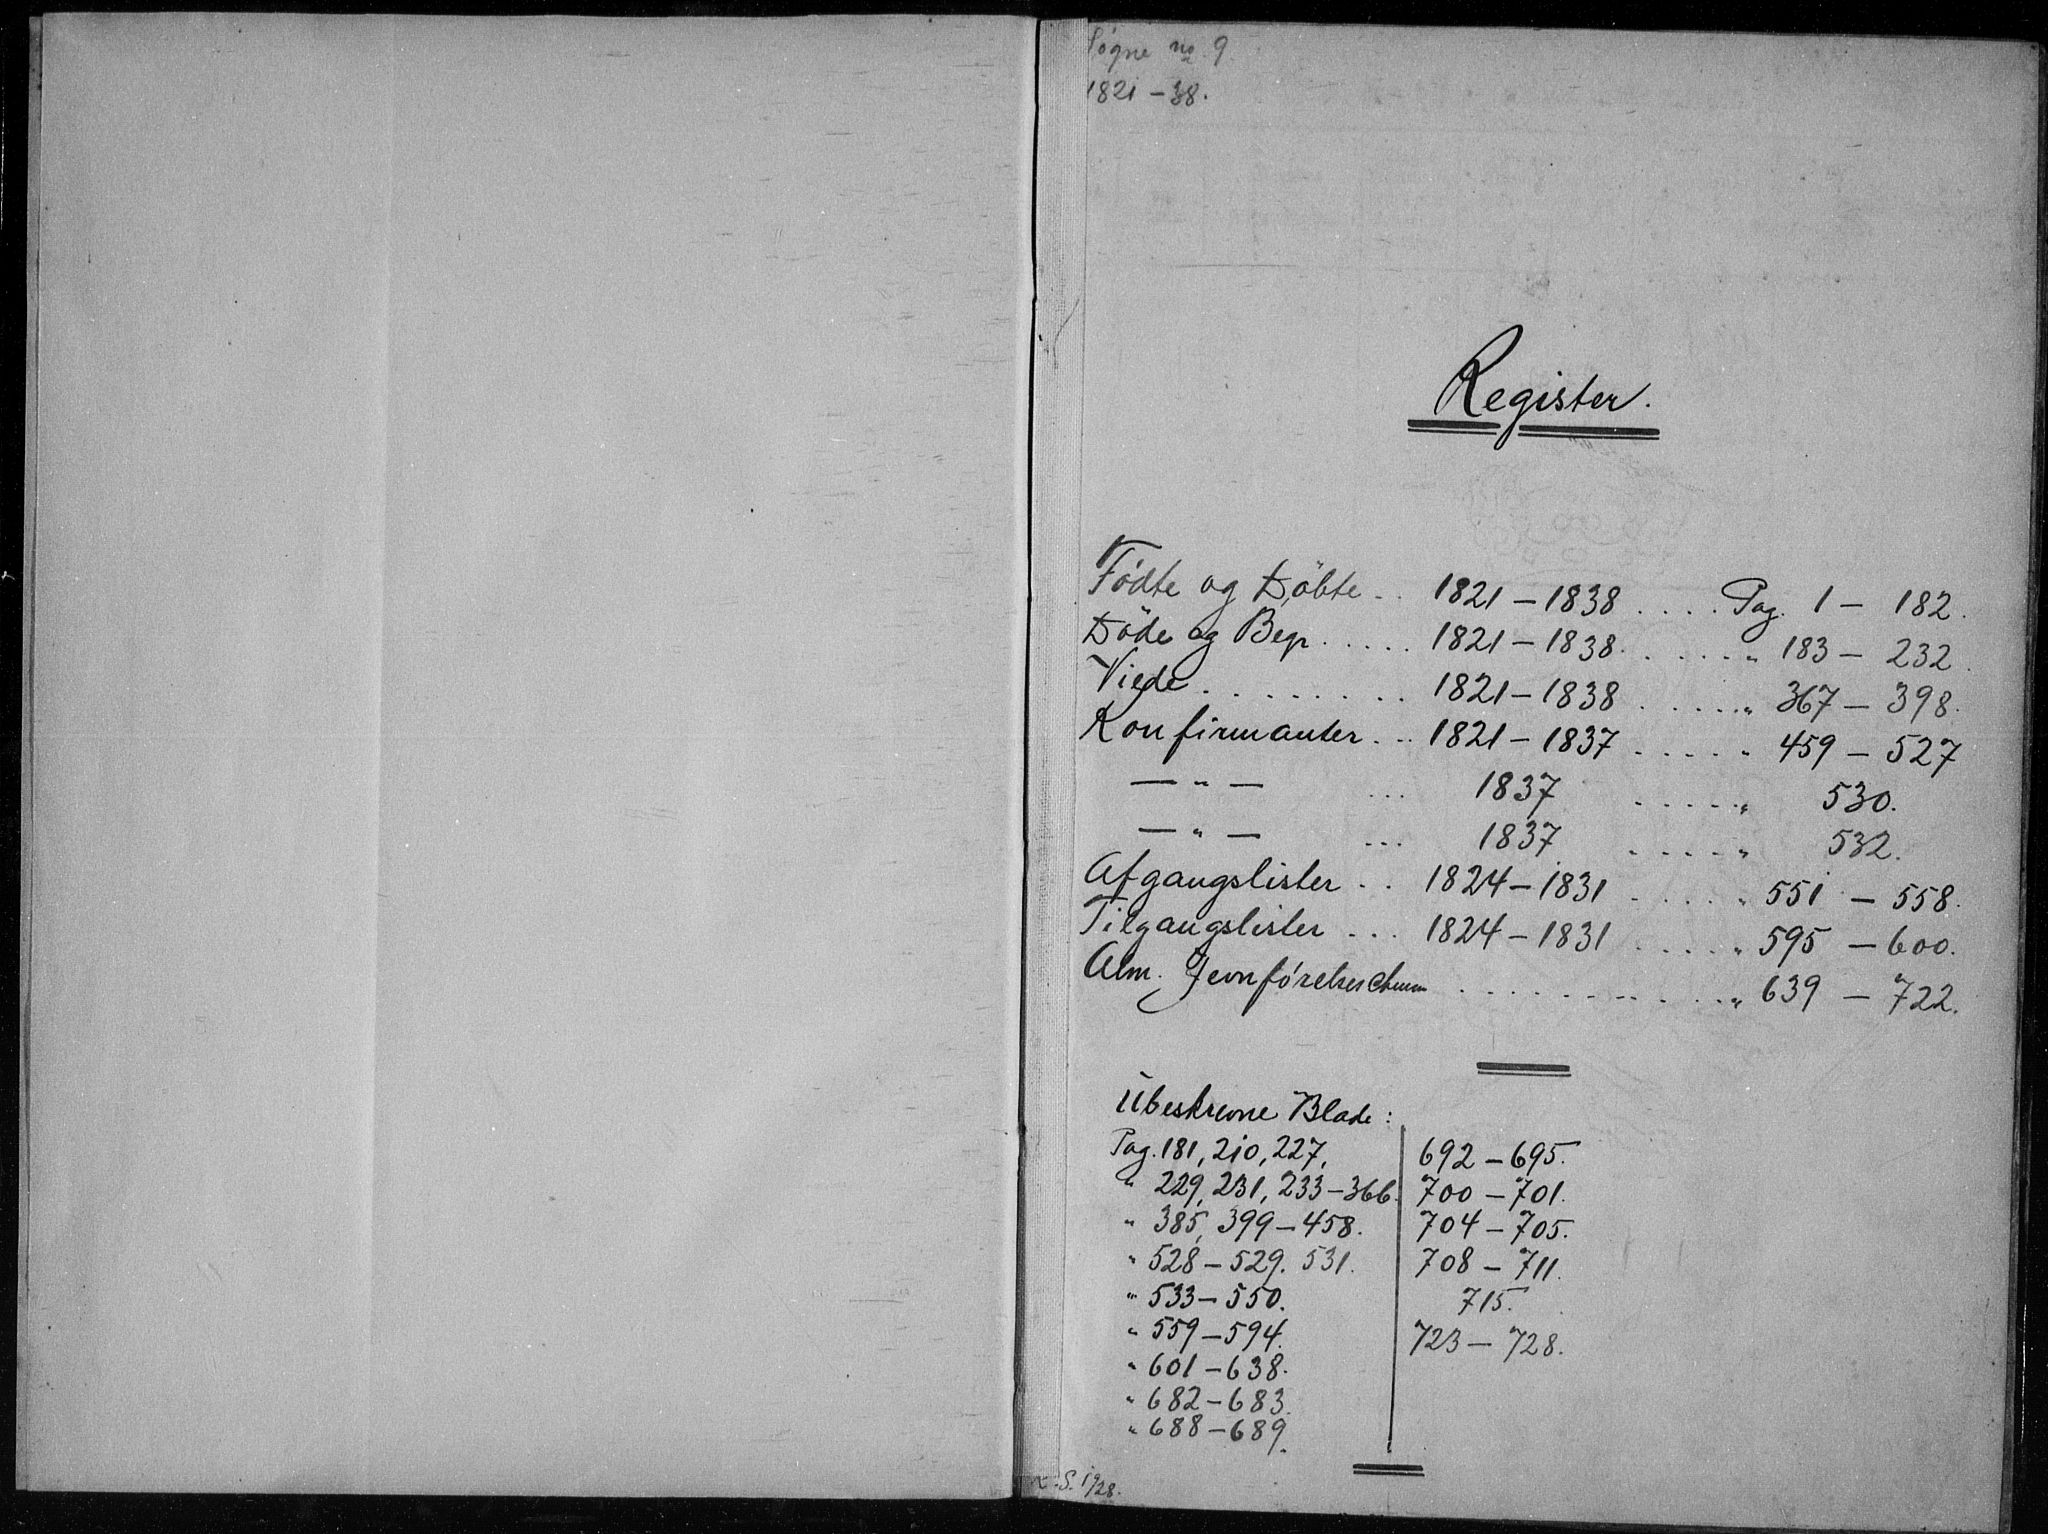 Søgne no 9.
1821-38.
Register.
Födte og Döbte .. 1821-1838 .... Pag. 1 - 182.
Döde og Begr. .... 1821-1838 ..... " 183 - 232.
Viede ........ 1821-1838 ..... " 367 - 398.
Konfirmanter ... 1821-1837 ..... " 459 - 527
— " — ... 1837 ..... " 530.
— " — ... 1837 ..... " 532.
Afgangslister .. 1824-1831 ..... " 551 - 558.
Tilgangslister ... 1824-1831 ..... " 595 - 600.
Alm. Jevnförelses ........... " 639 - 722.
Ubeskrevne Blade:
Pag. 181, 210, 227,
" 229, 231, 233-366.
" 385, 399-458.
" 528-529. 531.
" 533-550.
" 559-594.
" 601-638.
" 682-683.
" 688-689.
692-695.
700-701.
704-705.
708-711.
715.
723-728.
S. 19/28.